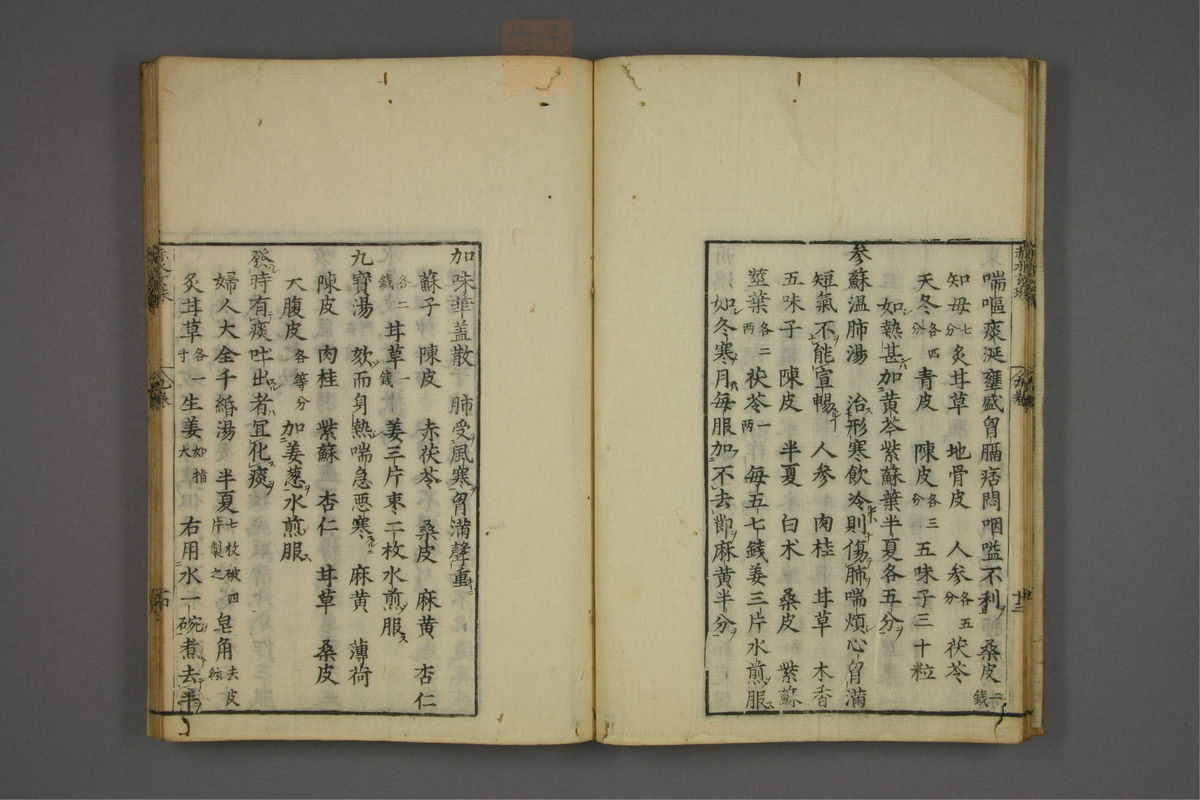 喘嘔痰涎壅盛胷膈痞悶咽嗌不利 桑皮二錢
知母七分 炙甘草 地骨皮 人参各五分 茯苓
天冬各四分 青皮 陳皮各三分 五味子三十粒
如熱甚加黄芩紫蘇葉半夏各五分
参蘇温肺湯 治形寒飲冷則傷肺喘煩心胷滿
短氣不能宣暢 人参 肉桂 甘草 木香
五味子 陳皮 半夏 白术 桑皮 紫蘇
莖葉各二両 茯苓一両 毎五七錢姜三片水煎服
如冬寒月毎服加不去節麻黄半分
加味華盖散 肺受風寒胷満聲重
蘇子 陳皮 赤茯苓 桑皮 麻黄 杏仁
各二錢 甘草一錢 姜三片棗二枚水煎服
九寳湯 欬而身熱喘急悪寒 麻黄 薄荷
陳皮 肉桂 紫蘇 杏仁 甘草 桑皮
大腹皮各等分 加姜葱水煎服
發時有痰吐出者宜化痰
婦人大全千緡湯 半夏七枚破四片製之 皂角去皮絃
炙甘草各一寸 生姜如指大 右用水一碗煮去半
九巻